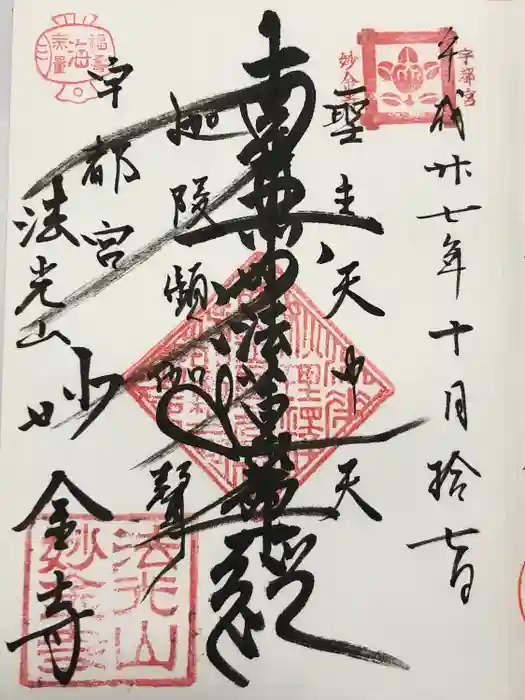 平成廿七年十月拾七日
宇都宮
妙金
聖主天中天
南無妙法蓮華経
迦陵頻伽聲
宇都宮
法光山
妙金寺
福寿海無量
法光山
妙金寺